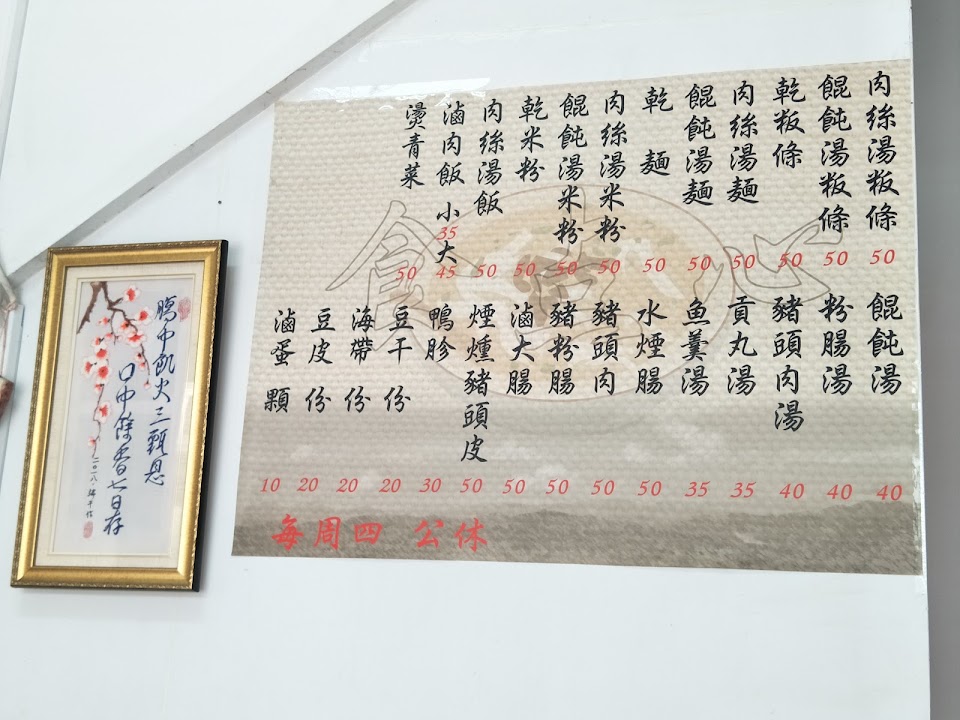 肉絲湯粄條 50
餛飩湯粄條 50
乾粄條 50
肉絲湯麵 50
餛飩湯麵 50
乾麵 50
肉絲湯米粉 50
餛飩湯米粉 50
乾米粉 50
肉絲湯飯 50
滷肉飯 小35 大45
燙青菜 50
餛飩湯 40
粉腸湯 40
豬頭肉湯 40
貢丸湯 35
魚羹湯 35
水煙腸 50
豬頭肉 50
豬粉腸 50
滷大腸 50
煙燻豬頭皮 50
鴨胗 30
豆干 份 20
海帶 份 20
豆皮 份 20
滷蛋 顆 10
每周四 公休
腸中飢火三甄息
口中餘香七日存
二〇一八